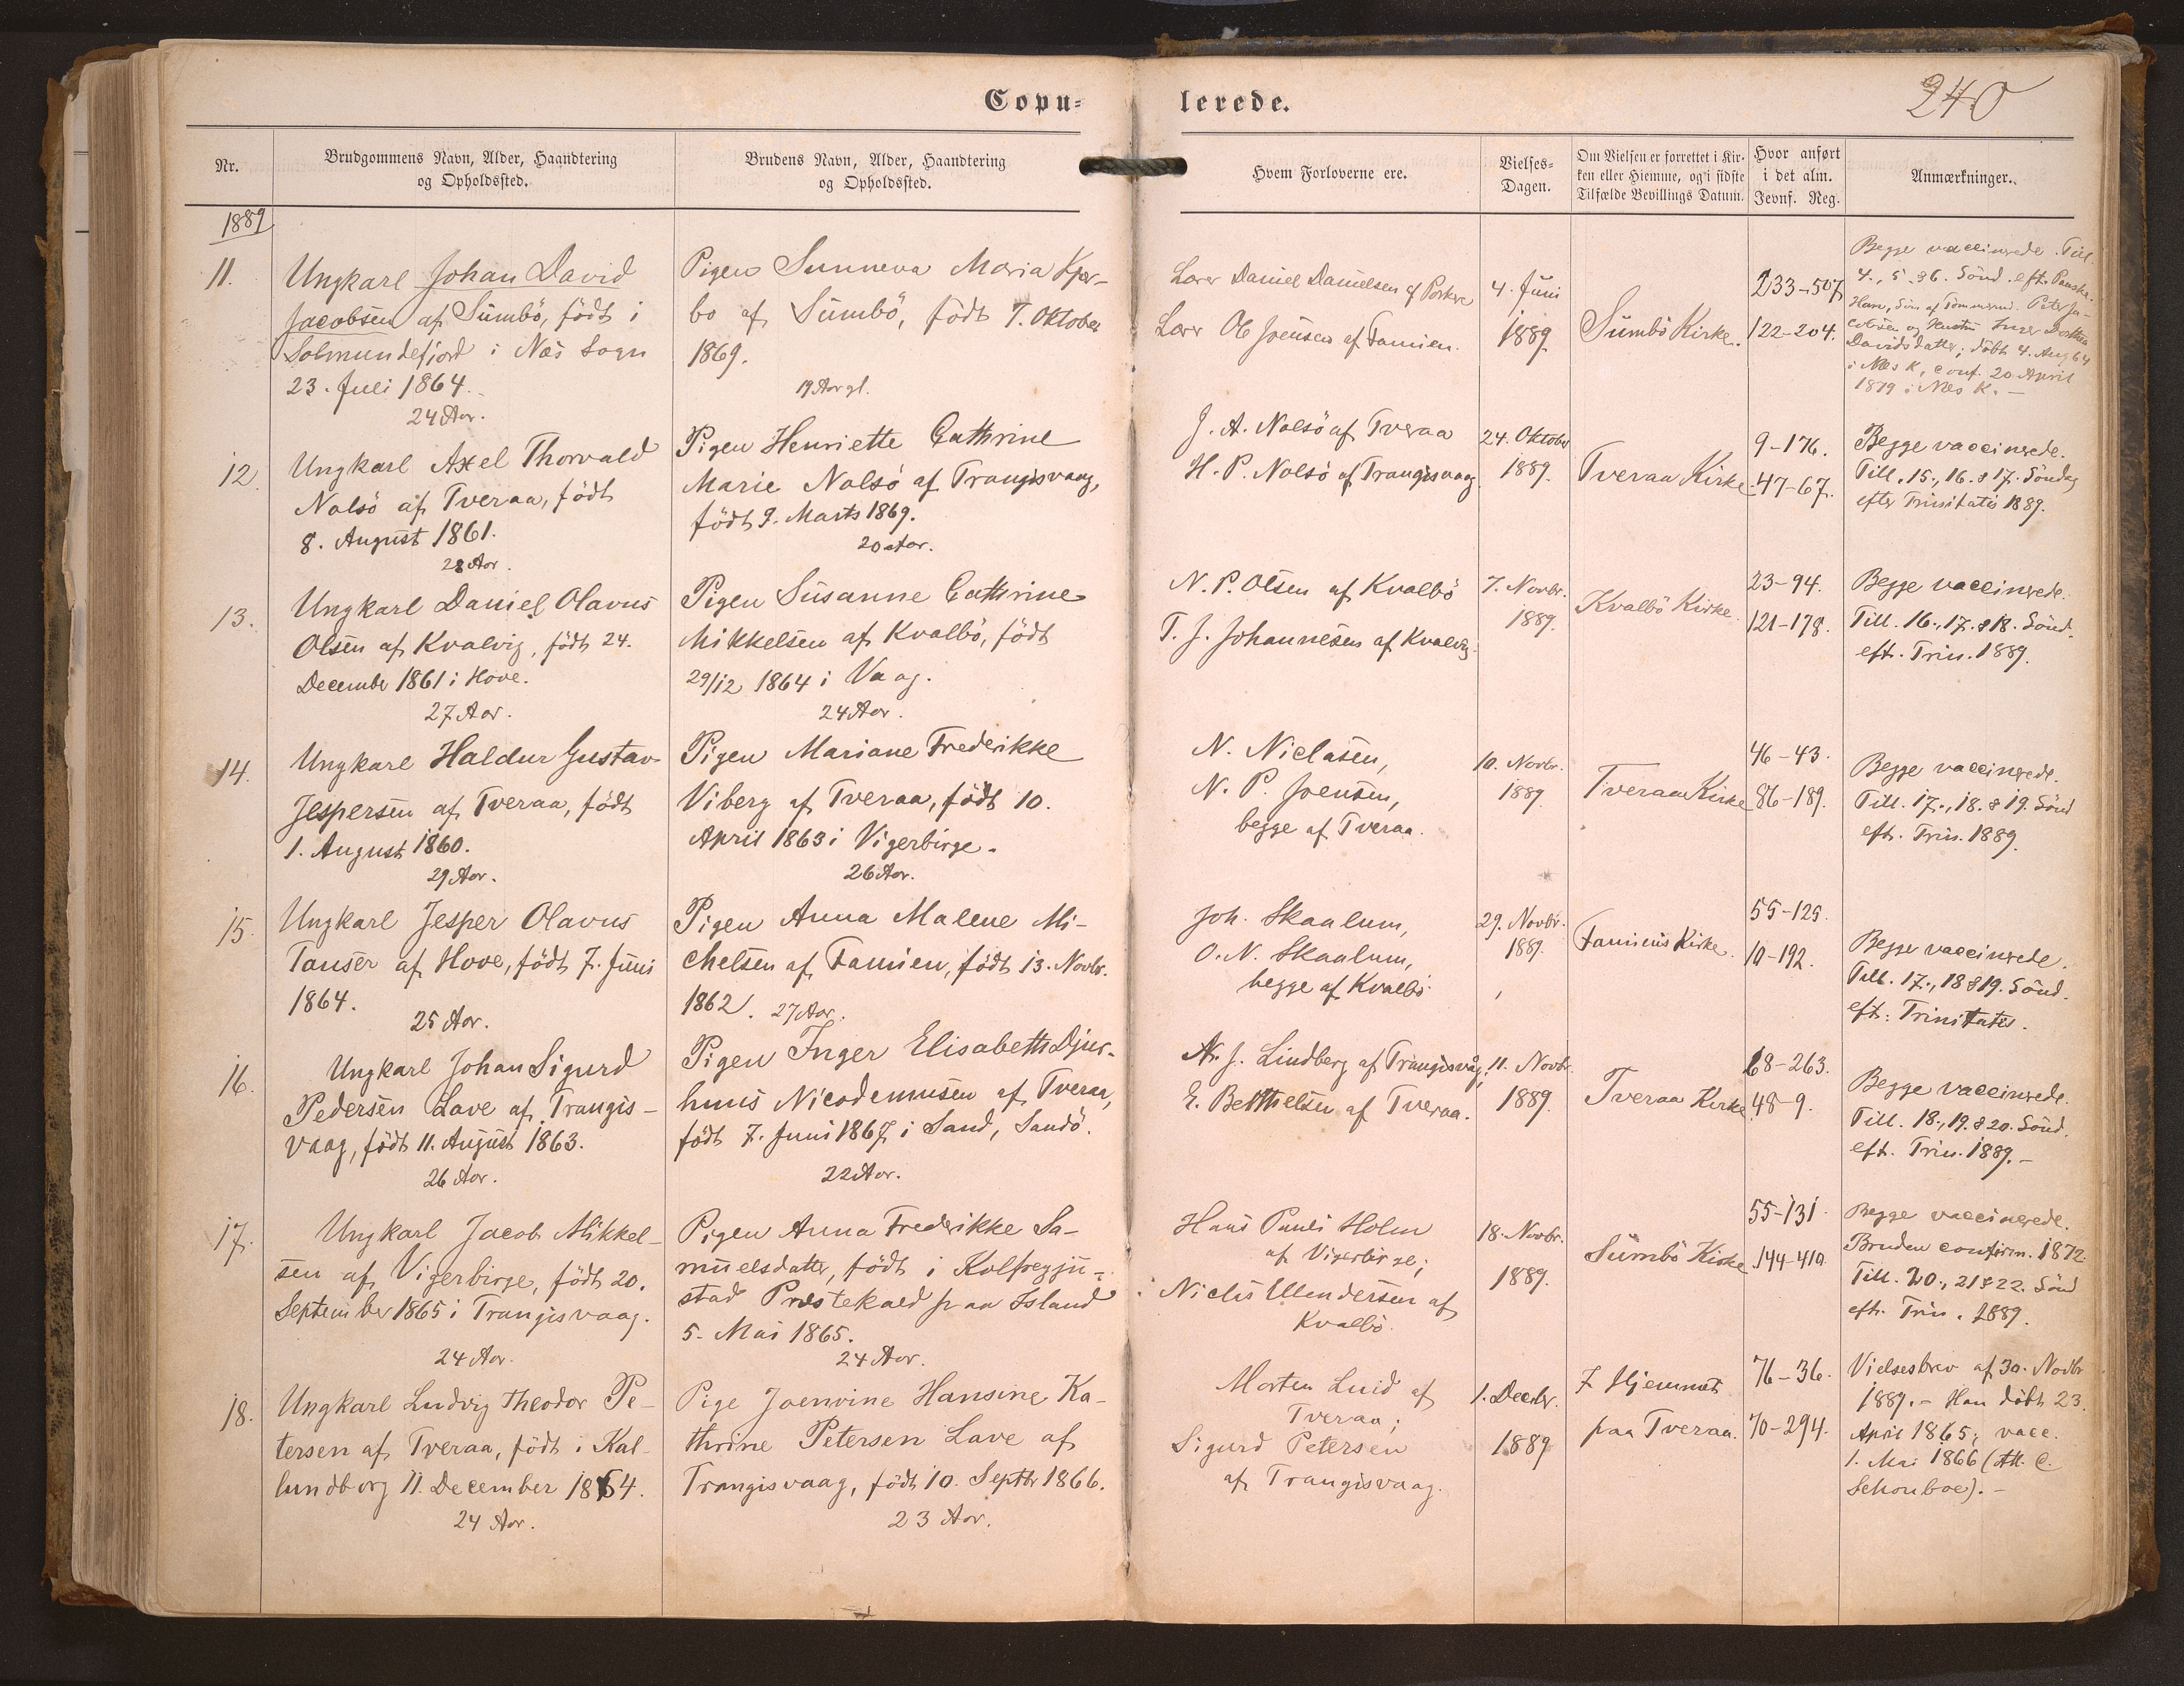 Copu-
lerede.
240
Nr.
Brudgommens Navn, Alder, Haandtering
og Opholdssted.
Brudens Navn, Alder, Haandtering
og Opholdssted.
Hvem Forloverne ere.
Vielses-
Dagen.
Om Vielsen er forrettet i Kir-
ken eller Hiemme, og i sidste
Tilfælde Bevillings Datum.
Hvor anført
i det alm.
Jevnf. Reg.
Anmærkninger.
1889
11.
Ungkarl Johan David
Jacobsen af Sumbö, födt i
Solmundefjord i Næs Sogn
23. Juli 1864.
24 Aar.
Pigen Sunneva Maria Kjær-
bo af Sumbö, födt 7. Oktober
1869.
19 Aar gl.
Lærer Daniel Danielsen af Porkere
Lærer Ole Joensen af Famien.
4. Juni
1889.
Sumbö Kirke.
233-507
122-204.
Begge vaccinerede. Till.
4., 5. & 6. Sönd. eft. Paaske.
Han, Sön af Tömmermd. Peter Ja-
cobsen og Hustru Dorthea
Davidsdatter; döbt 4. Aug 64
i Næs K, conf. 20 April
1879 i Næs K. -
12.
Ungkarl Axel Thorvald
Nolsö af Tveraa, födt
8. August 1861.
28 Aar.
Pigen Henriette Cathrine
Marie Nolsö af Trangisvaag,
födt 9. Marts 1869.
20 Aar.
J. A. Nolsö af Tveraa
H. P. Nolsö af Trangisvaag
24. Oktober
1889.
Tveraa Kirke.
9-176.
47-67.
Begge vaccinerede.
Till. 15., 16. & 17. Söndag
efter Trinitatis 1889.
13.
Ungkarl Daniel Olavus
Olsen af Kvalvig, födt 24.
December 1861 i Hove.
27 Aar.
Pigen Susanne Cathrine
Mikkelsen af Kvalbö, födt
29/12 1864 i Vaag.
24 Aar.
N. P. Olsen af Kvalbö
T. J. Johannesen af Kvalvig.
7. Novbr.
1889.
Kvalbö Kirke.
23-94.
121-178.
Begge vaccinerede.
Till. 16., 17. & 18. Sönd.
eft. Trin. 1889.
14.
Ungkarl Haldur Gustav
Jespersen af Tveraa, födt
1. August 1860.
29 Aar.
Pigen Mariane Frederikke
Viberg af Tveraa, födt 10.
April 1863 i Vigerbirge.
26 Aar.
N. Niclasen,
N. P. Joensen,
begge af Tveraa.
10. Novbr.
1889.
Tveraa Kirke
46-43.
86-189.
Begge vaccinerede.
Till. 17., 18. & 19. Sönd
eft. Trin. 1889.
15.
Ungkarl Jesper Olavus
Tausen af Hove, födt 7. Juni
1864.
25 Aar.
Pigen Anna Malene Mi-
chelsen af Famien, födt 13. Novbr.
1862. 27 Aar.
Joh. Skaalum,
O. N. Skaalum,
begge af Kvalbö
29. Novbr.
1889.
Famiens Kirke.
55-125.
10-192.
Begge vaccinerede.
Till. 17., 18 & 19. Sönd.
eft. Trinitatis.
16.
Ungkarl Johan Sigurd
Pedersen Lave af Trangis-
vaag, födt 11. August 1863.
26 Aar.
Pigen Inger Elisabeth Djur-
huus Nicodemusen af Tveraa,
födt 7. Juni 1867 i Sand, Sandö.
22 Aar.
N. J. Lindberg af Trangisvåg,
E. Berthelsen af Tveraa.
11. Novbr.
1889.
Tveraa Kirke
68-263.
48-9.
Begge vaccinerede.
Till. 18., 19. & 20. Sönd.
eft. Trin. 1889. -
17.
Ungkarl Jacob Mikkel-
sen af Vigerbirge, födt 20.
September 1865 i Trangisvaag.
24 Aar.
Pigen Anna Frederikke Sa-
muelsdatter, födt i Kolfreyju-
stad Præstekald paa Island
5. Mai 1865.
24 Aar.
Hans Pauli Holm
af Vigerbirge;
Niclis Ellendersen af
Kvalbö.
18. Novbr.
1889.
Sumbö Kirke
55-131.
144-410
Begge vaccinerede.
Bruden confirm. 1872.
Till. 20., 21 & 22. Sönd
eft. Trin. 1889.
18.
Ungkarl Ludvig Theodor Pe-
tersen af Tveraa, födt i Kal-
lundborg 11. December 1864.
24 Aar.
Pige Joenvine Hansine Ka-
thrine Petersen Lave af
Trangisvaag, födt 10. Septbr 1866.
23 Aar.
Morten Luid af
Tveraa;
Sigurd Petersen
af Trangisvaag.
1. Decbr.
1889
I Hjemmet
paa Tveraa.
76-36.
70-294.
Vielsesbrev af 30. Novbr
1889. - Han döbt 23.
April 1865; vacc.
1. Mai 1866 (Att. C.
Schouboe). -